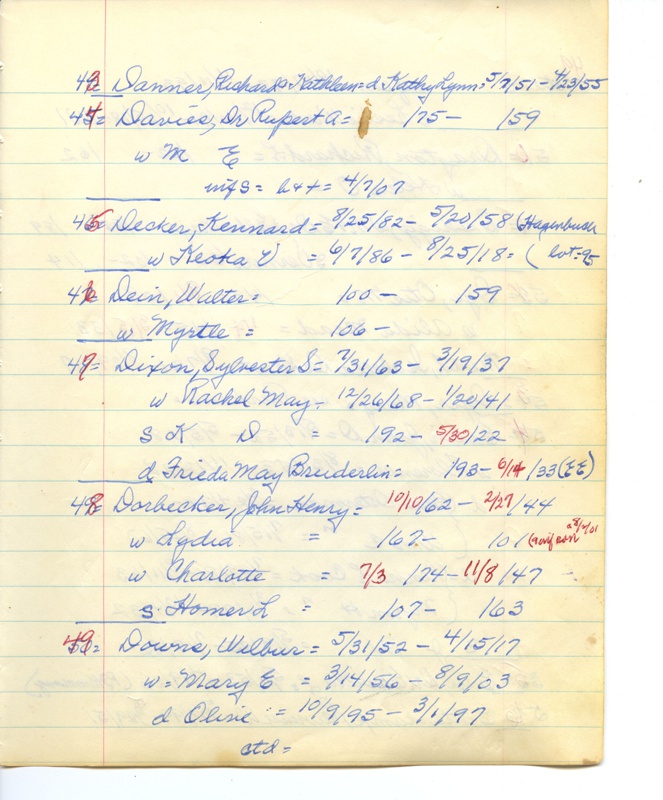 43= Danner, Richard & Kathleen= d Kathy Lynn= 5/7/51 - 4/23/55
44= Davies, Dr Rupert A= 175- 159
w M E
infs = b&t= 4/7/07
45= Decker, Kennard= 8/25/82- 5/20/58 (Hagenbuch
w Keoka V = 6/7/86 - 8/25/18= ( lot=95
46= Dein, Walter= 100 - 159
w Myrtle = 106 -
47= Dixon, Sylvester S= 7/31/63- 3/19/37
w Rachel May- 12/26/68 - 1/20/41
s K D = 192- 5/30/22
d Frieda May Bruiderlin= 193- 6/14/33 (EE)
48= Dorbecker, John Henry= 10/10/62 - 2/27/44
w Lydia = 167- 101
w Charlotte = 7/3 174-11/8/47
s Homer L = 107- 163
49= Downs, Wilbur = 5/31/52 - 4/15/17
w= Mary E = 3/14/56 - 8/9/03
d Olive = 10/9/95 - 3/1/97
ctd=